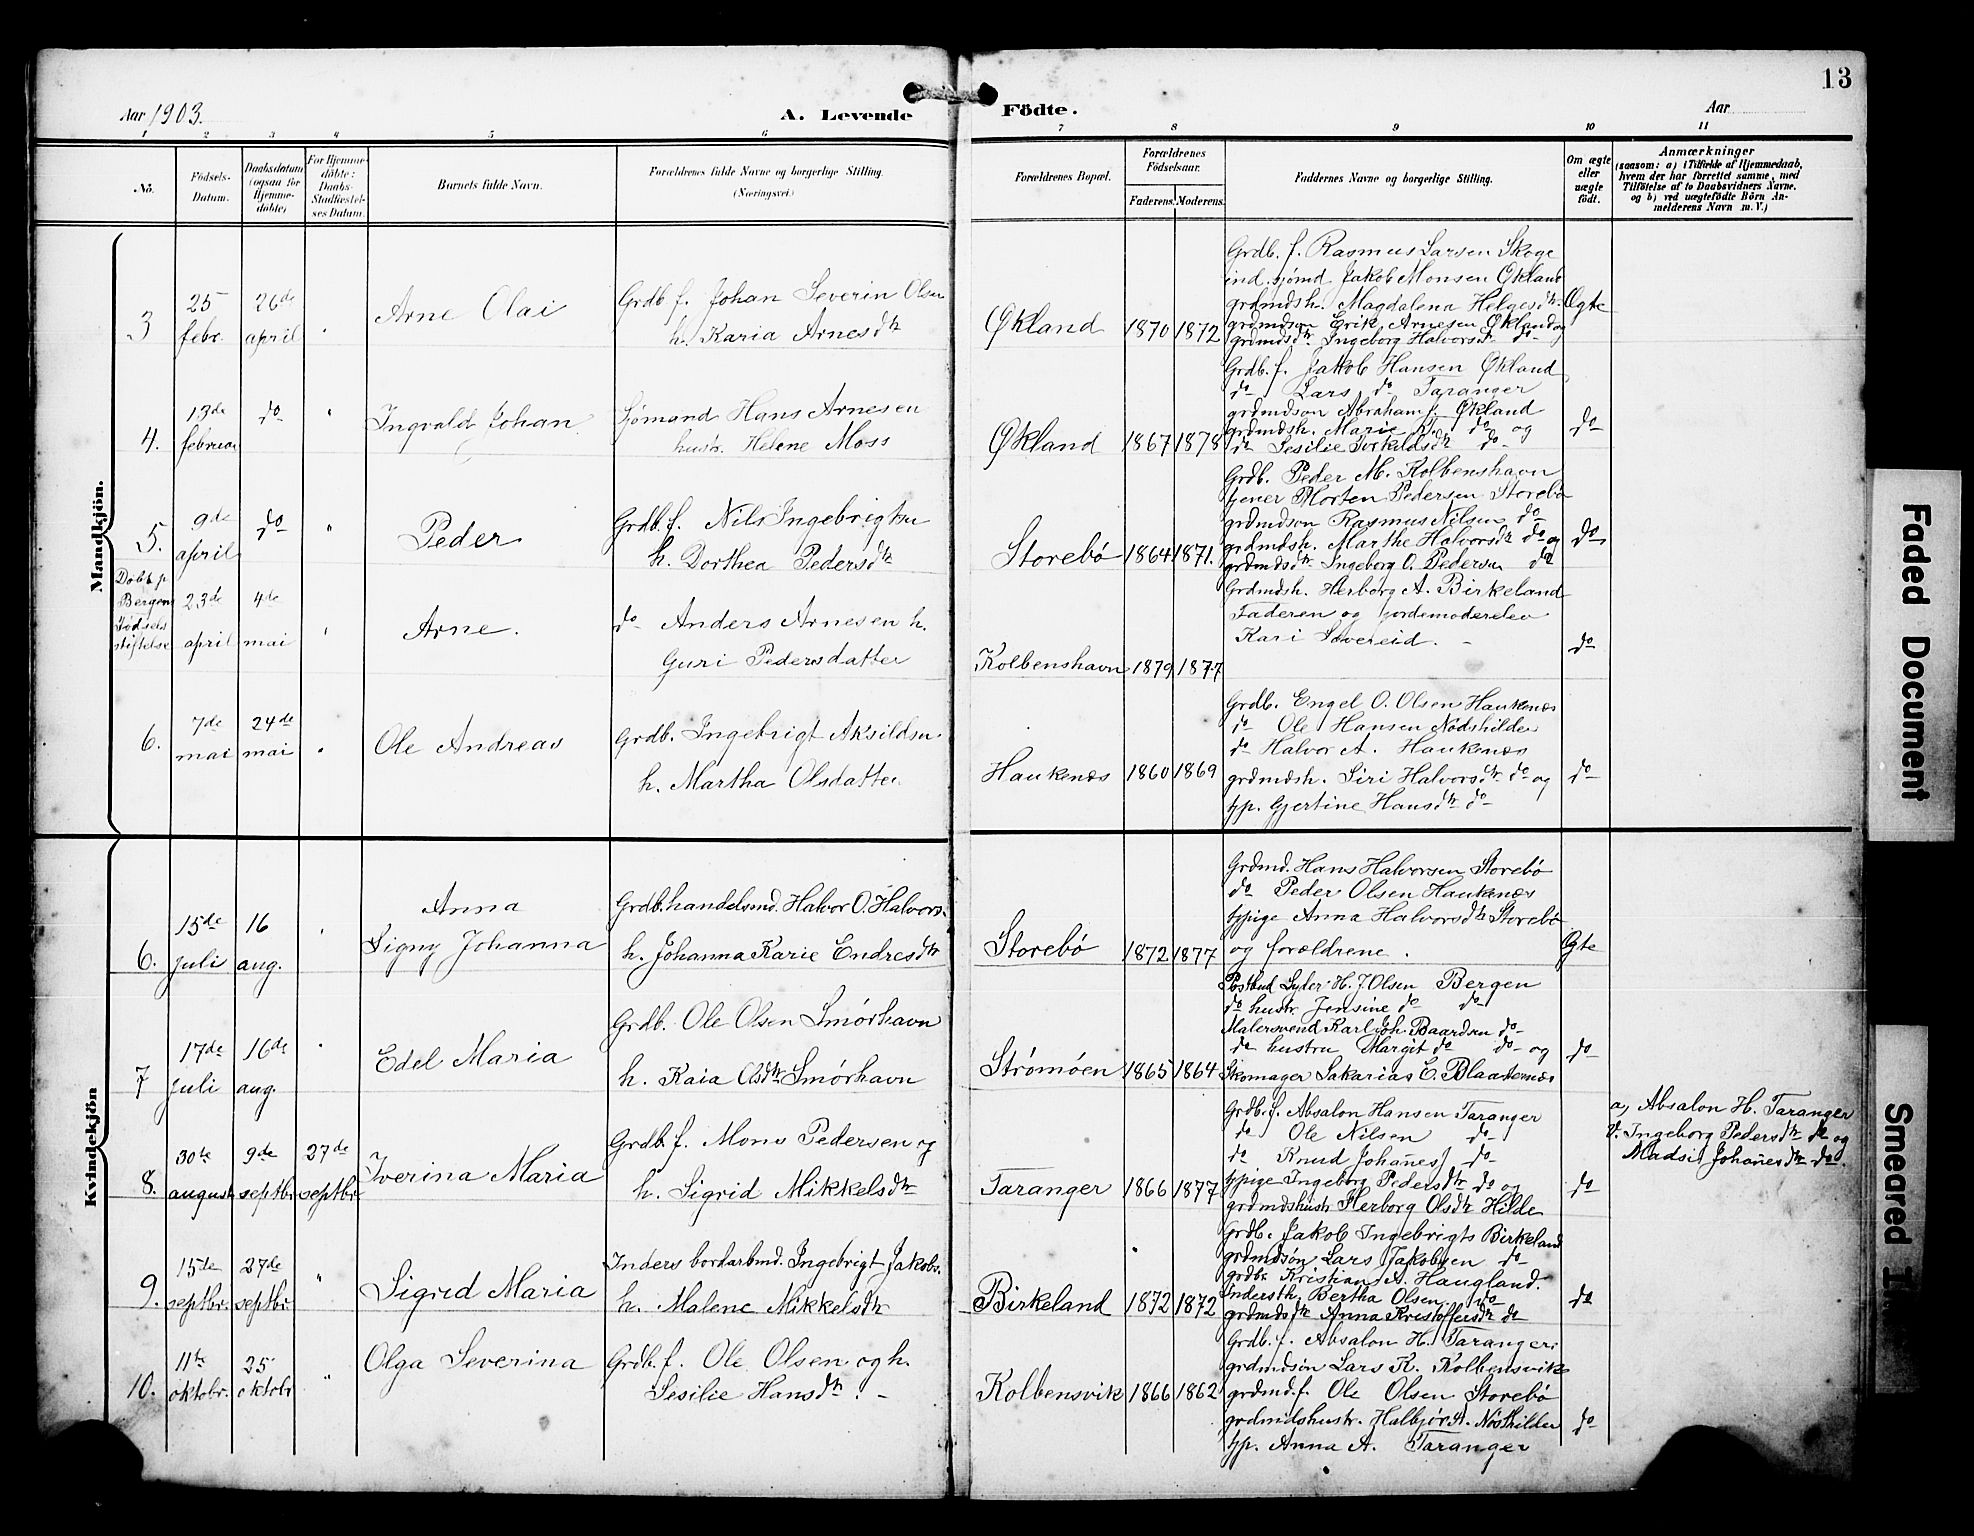 13
Aar 1903.
A. Levende Födte.
Aar
1 2 3 4 5 6 7 8 9 10 11
No.
Födsels-Datum.
Daabsdatum (ogsaa for Hjemme-döbte)
For Hjemme-döbte: Daabs-Stadfæstel-ses Datum.
Barnets fulde Navn.
Forældrenes fulde Navne og borgerlige Stilling. (Næringsvei.)
Forældrenes Bopæl.
Forældrenes Födselsaar.
Faderens. Moderens.
Faddernes Navne og borgerlige Stilling.
Om ægte eller uægte födt.
Anmærkninger
(saasom: a) i Tilfælde af Hjemmedaab, hvem der har forrettet samme, med Tilföielse af to Daabsvidners Navne, og b) ved uægtefödte Börn An-melderens Navn m. V.)
Mandkjön.
3
25 febr.
26de april
Arne Olai
Grdb. f. Johan Severin Olsen
h. Karia Arnesdtr
Økland
1870 1872
Grdb. f. Rasmus Larsen Skoge
ind. sjömd. Jakob Monsen Økland
grdmdsh. Magdalena Helgesdtr
grdmdsøn Erik Arnesen Økland og
grdmdsdtr. Ingeborg Halvorsdt do
Ægte
4.
13de februar
do
Ingvald Johan
Sjömand Hans Arnesen
hustr. Helene Moss
Økland
1867 1878
Grdb. f. Jakob Hansen Økland
do Lars do Taranger
grdmdsøn Abraham J. Økland
grdmdsh. Marie do og
do Sesilie do
do
5.
9de april
do
Peder
Grdb. f. Nils Ingebrigtsn
h. Dorthea Pedersdtr
Storebö
1864 1871.
Grdb. Peder M. Kolbenshavn
tjener Morten Pedersen Storebö
grdmdsøn Rasmus Nilsen do
grdmdsh. Marthe Halvorsdtr do og
grdmdsdtr. Ingeborg O. Pedersen do
do
Döbt p. Bergens Födsels stiftelse
23de april
4de mai
Arne.
do Anders Arnesen h.
Guri Pedersdatter
Kolbenshavn
1879 1877
Grdmdsh. Herborg A. Birkeland
Faderen og jordemoderelev
Kari Sævereid.
do
6.
7de mai
24de mai
Ole Andreas
Grdb. Ingebrigt Aksildsn
h. Martha Olsdatter
Haukenæs
1860 1869
Grdb. Engel O. Olsen Haukenæs
do Ole Hansen Nodshilder
do Halvor A. Haukenæs
grdmdsh. Siri Halvorsdtr do og
tjp. Gjertine Hansdtr do
do
Kvindekjön
6.
15de juli
16 aug.
Anna
Signy Johanna
Grdb. handelsmd. Halvor O. Halvors.
h. Johanna Karie Endresdtr
Storebö
1872 1877
Grdmd. Hans Halvorsen Storebö
do Peder Olsen Haukenæs
tjpige Anna Halvorsdtr Storebö
og forældrene.
Ægte
7
17de juli
16de aug.
Edel Maria
Grdb. Ole Olsen Smörhavn
h. Kaia Olsdtr Smörhavn
Strömöen
1865 1864
Postbud Syder H. J. Olsen Bergen
do hustr. Jensine do do
Malersvend Karl Joh. Baardsen do
do hustru Margit do do og
Skomager Sakarias E. Blaatenæs
do
8.
30te august
9de septbr
27de septbr.
Iverina Maria
Grdb. f. Mons Pedersen og
h. Sigrid Mikkelsdtr
Taranger
1866 1877
Grdb. f. Absalon Hansen Taranger
do Ole Nilsen do
do Knud Johanes do
tjpige Ingeborg Pedersdtr do og
grdmdshustr Herborg Olsdtr Hilde
do
a, Absalon H. Taranger
V. Ingeborg Pedersdtr do og
Madsi Johanesdtr do.
9.
15de septbr.
27de septbr.
Sigrid Maria
Inders. bordarbmd. Ingebrigt Jakobs.
h. Malene Mikkelsdtr
Birkeland
1872 1872
Grdb. Jakob Ingebrigts Birkeland
grdmdsøn Lars Jakobsen do
grdbr. Kristian A. Haugland.
Inderstk. Bertha Olsen do
grdmdsdtr Anna Kristoffersdtr do
do
10.
11te oktobr.
25 oktobr
Olga Severina
Grdb. f. Ole Olsen og h.
Sesilie Hansdtr.
Kolbensvik
1866 1862
Grdb. f. Absalon H. Taranger
grdmdsøn Lars K. Kolbensvik
grdmd. f. Ole Olsen Storebö
grdmdshustr. Halbjör A. Nösthilder
tjp. Anna A. Taranger
do
Faded Document
Smeared